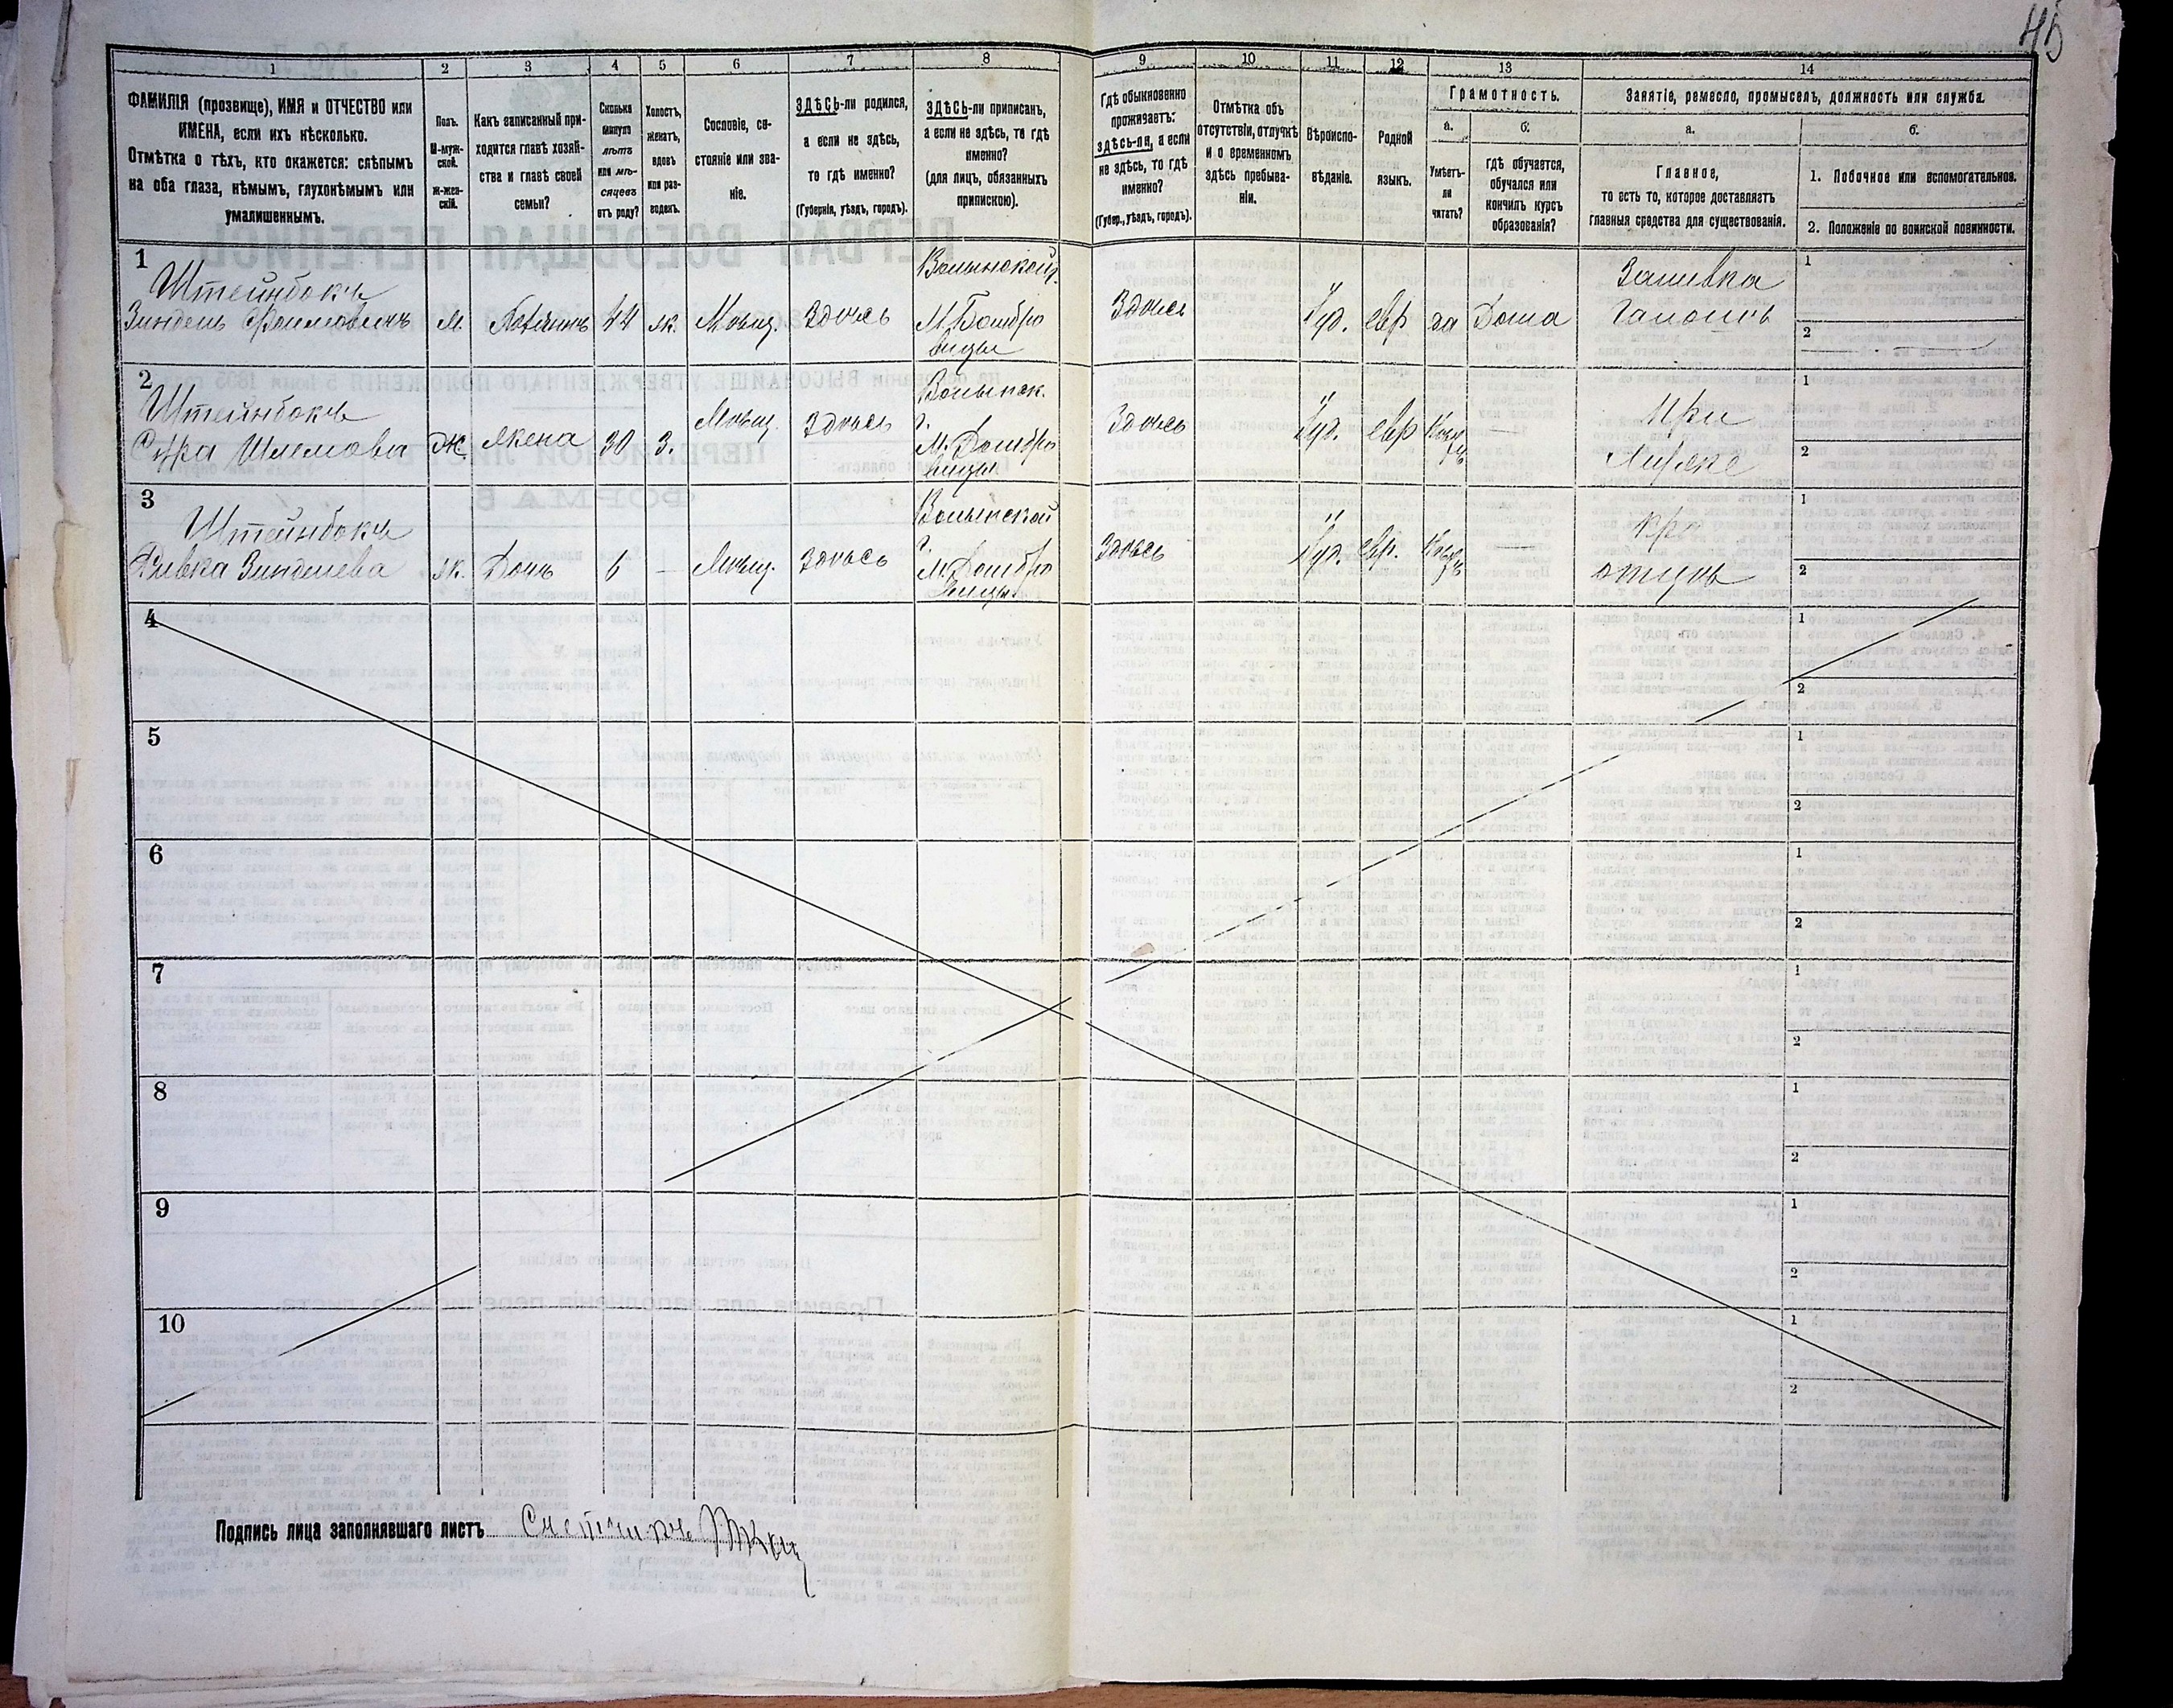 45
1 2 3 4 5 6 7 8 9 10 11 12 13 14
ФАМИЛІЯ (прозвище), ИМЯ и ОТЧЕСТВО или
ИМЕНА, если ихъ нѣсколько.
Отмѣтка о тѣхъ, кто окажется: слѣпымъ
на оба глаза, нѣмымъ, глухонѣмымъ или
умалишеннымъ.
Полъ.
М-муж-
ской.
ж-жен-
скій.
Какъ записанный при-
ходится главѣ хозяй-
ства и главѣ своей
семьи?
Сколько
минуло
лѣтъ
или мѣ-
сяцевъ
отъ роду?
Холостъ,
женатъ,
вдовъ
или раз-
веденъ.
Сословіе, со-
стояніе или зва-
ніе.
ЗДѢСЬ-ли родился,
а если не здѣсь,
то гдѣ именно?
(Губернія, уѣздъ, городъ).
ЗДѢСЬ-ли приписанъ,
а если не здѣсь, то гдѣ
именно?
(для лицъ, обязанныхъ
припискою).
Гдѣ обыкновенно
проживаетъ:
здѣсь-ли, а если
не здѣсь, то гдѣ
именно?
(Губер., уѣздъ, городъ).
Отмѣтка объ
отсутствіи, отлучкѣ
и о временномъ
здѣсь пребыва-
ніи.
Вѣроиспо-
вѣданіе.
Родной
языкъ.
Грамотность.
а.
Умѣетъ-
ли
читать?
б.
гдѣ обучается,
обучался или
кончилъ курсъ
образованія?
Занятіе, ремесло, промыселъ, должность или служба.
а.
Главное,
то есть то, которое доставляетъ
главныя средства для существованія.
б.
1. Побочное или вспомогательное.
2. Положеніе по воинской повинности.
1
Штейнбокъ
Зиндель
м.
44
ж.
Мѣщ.
Здѣсь
Волынской г.
М. Домбро
вицы
Здѣсь
Іуд.
евр
да
Дома
1
2
2
Штейнбокъ
Сура Шлемова
ж.
жена
30
з.
Мѣщ.
Здѣсь
Волынск.
г.
М. Домбро
вицы
Здѣсь
Іуд.
евр
При
мужѣ
1
2
3
Штейнбокъ
Ривка Зинделева
ж.
Дочь
6
Мѣщ.
Здѣсь
Волынской
г.
М. Домбро
вицы
Здѣсь
Іуд.
евр.
при
отцѣ
1
2
4
1
2
5
1
2
6
1
2
7
1
2
8
1
2
9
1
2
10
1
2
Подпись лица заполнявшаго листъ Счетчикъ